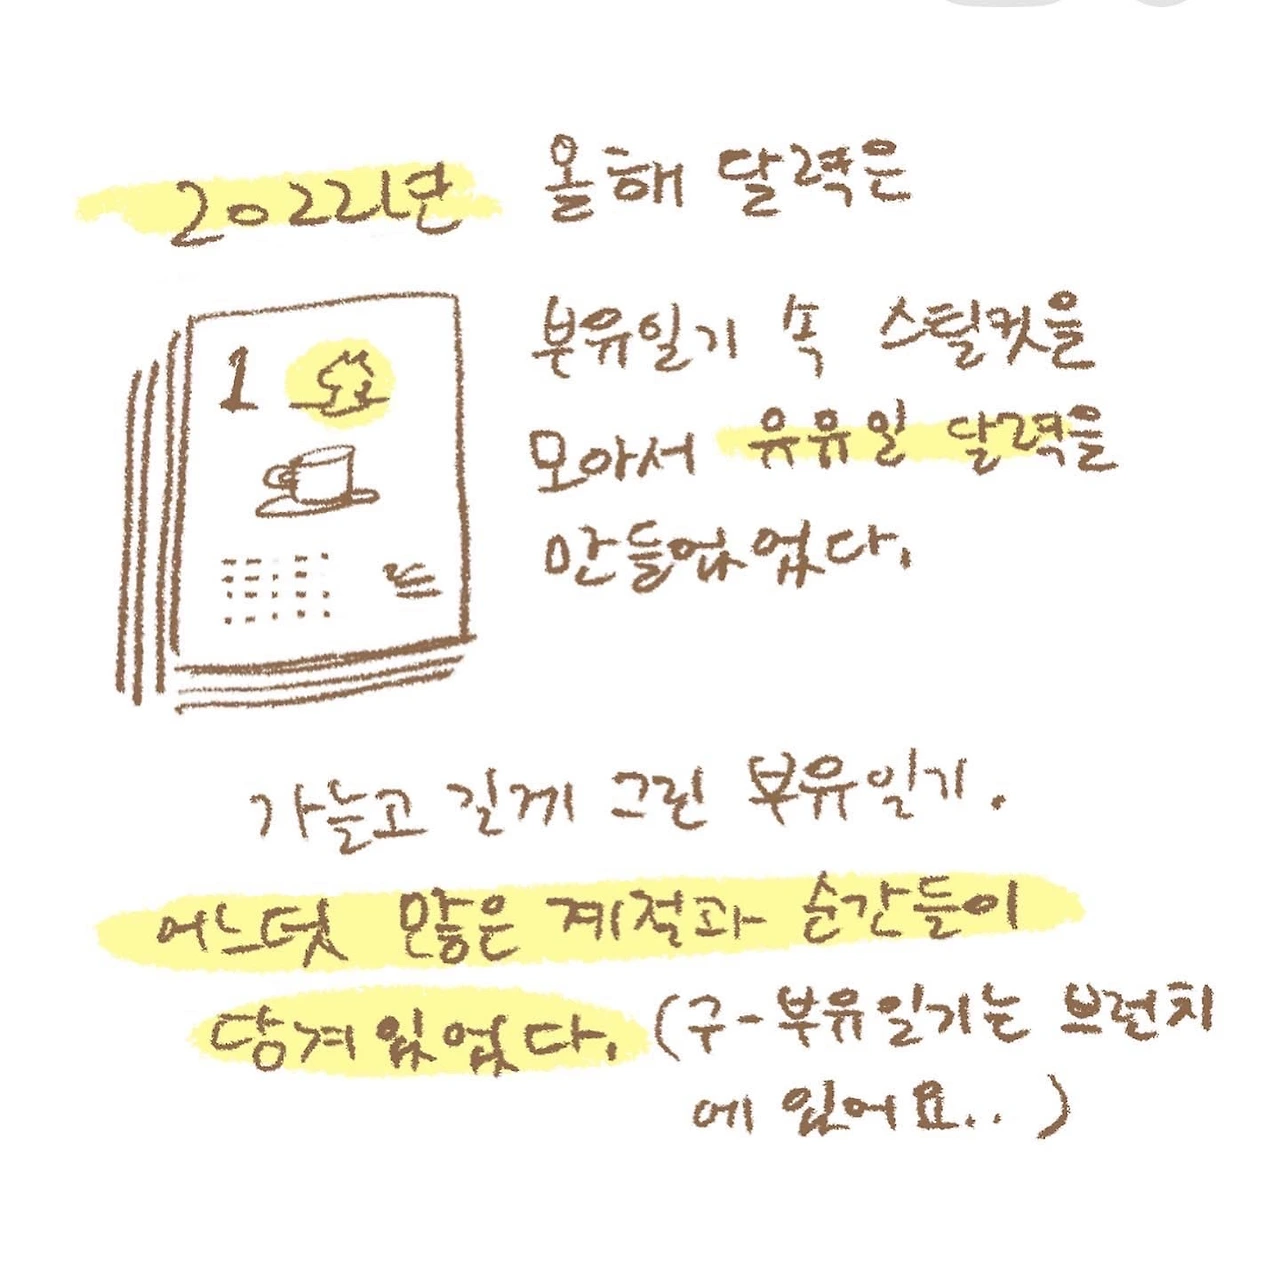 2022년 올해 달력은
부유일기 속 스틸컷을
모아서 유유일 달력을
만들었었다.
1
가늘고 길게 그린 부유일기.
어느덧 많은 계절과 순간들이
담겨있었다. (구-부유일기는 브런치
에 있어요..)